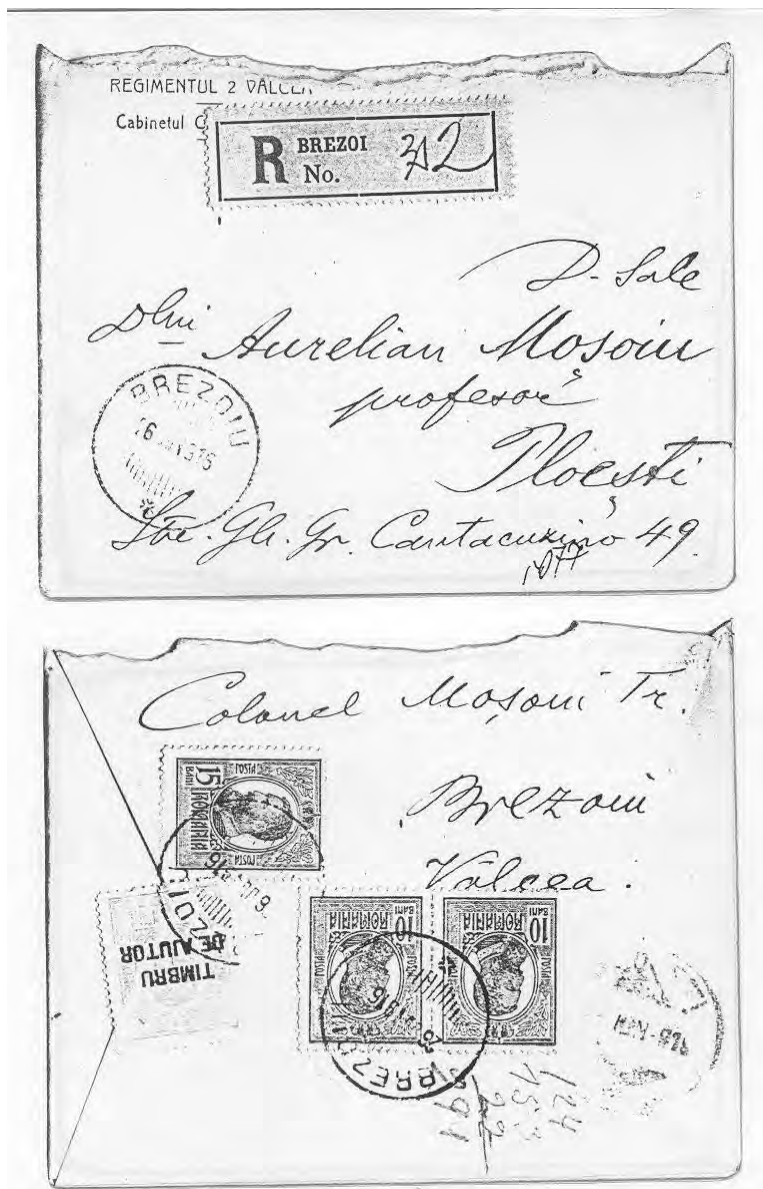 REGIMENTUL 2 VÂLCEA
Cabinetul C
R BREZOI
No. 312
D-Sale
Dlui Aurelian Moșoiu
profesor
Ploești
Str. Gh. Gr. Cantacuzino 49.
1077
BREZOIU
Colonel Moșoiu Tr.
Brezoiu
Vâlcea.
15 BANI
ROMANIA
POSTA
TIMBRU
DE AJUTOR
10 BANI
ROMANIA
POSTA
10 BANI
ROMANIA
POSTA
BREZOIU